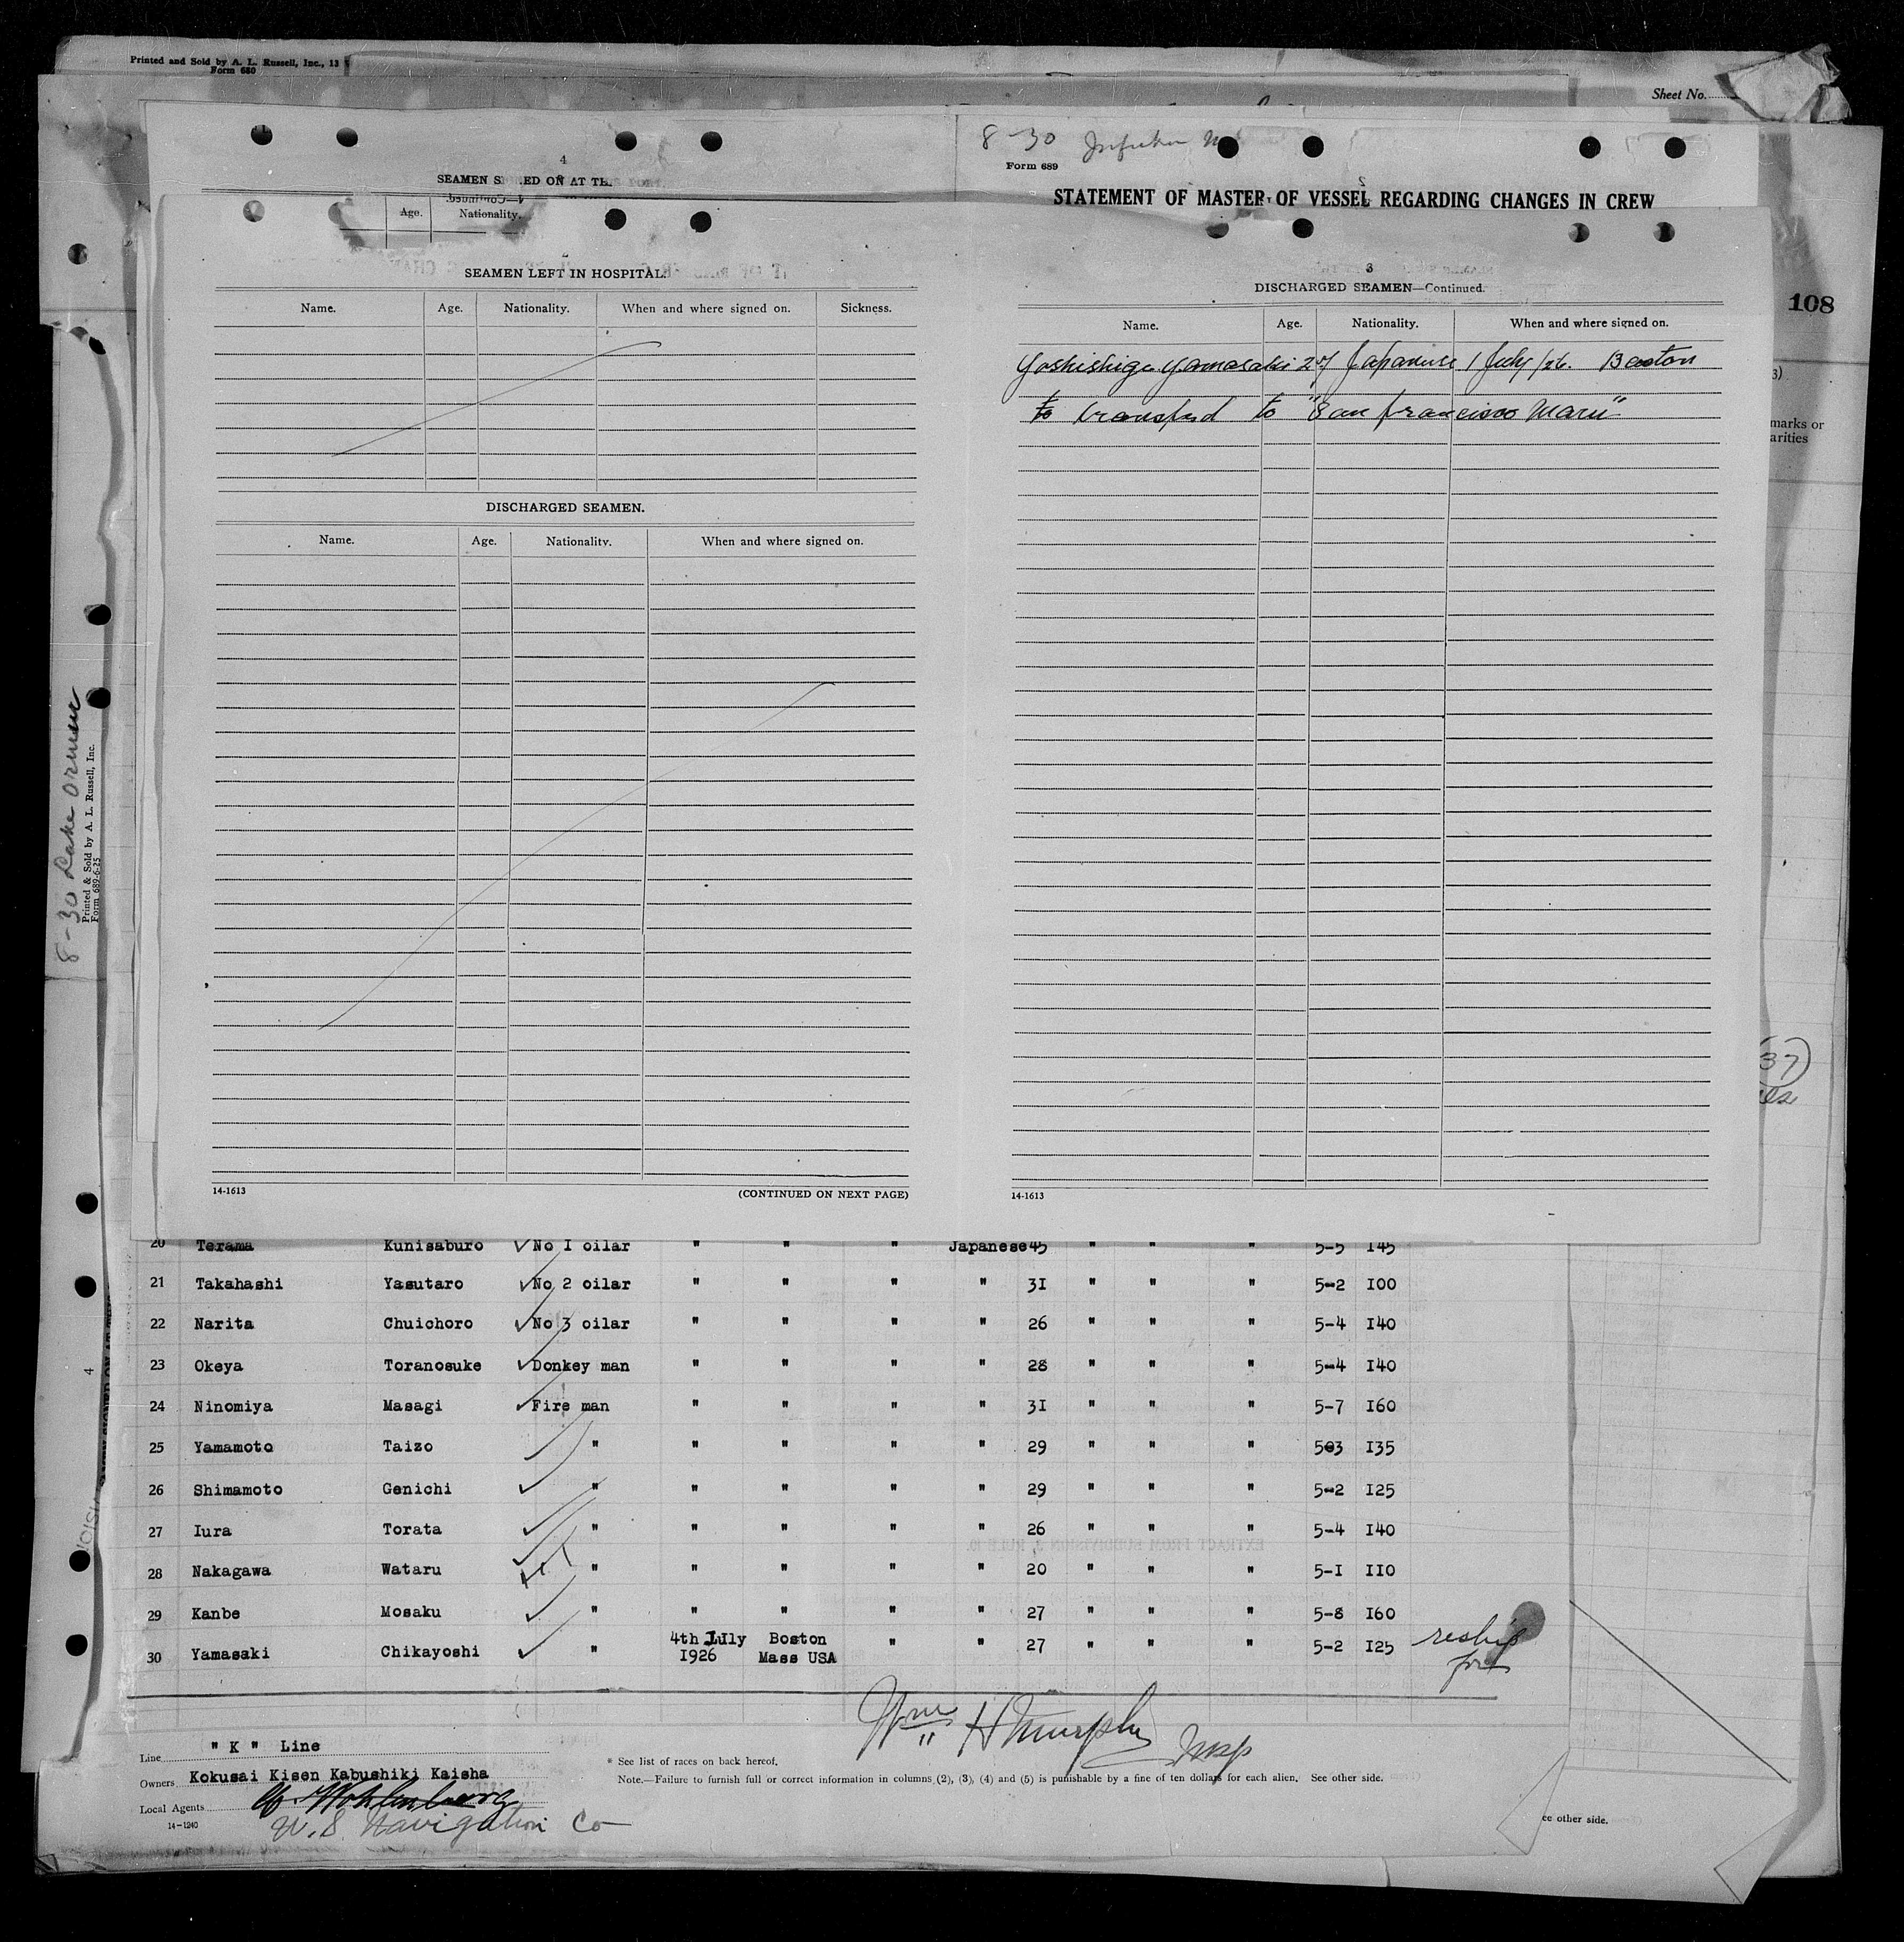 Printed and Sold by A. L. Russell, Inc., 13
Form 680
Sheet No.
8-30
Form 689
4
SEAMEN S ED ON AT TH
STATEMENT OF MASTER OF VESSEL REGARDING CHANGES IN CREW
Age. Nationality.
108
marks or
arities
37
SEAMEN LEFT IN HOSPITAL.
Name. Age. Nationality. When and where signed on. Sickness.
DISCHARGED SEAMEN.
Name. Age. Nationality. When and where signed on.
14-1613 (CONTINUED ON NEXT PAGE)
3
DISCHARGED SEAMEN—Continued.
Name. Age. Nationality. When and where signed on.
Yoshishige Yamasaki 27 Japanese 1 July /26. Boston
to transferd to "San Francisco Maru"
14-1613
8-30 Lake Ormoc
Printed & Sold by A. L. Russell, Inc.
Form 689-6-25
4
20 Terama Kunisaburo No I oilar " " " Japanese 45 " " " 5-5 I45
21 Takahashi Yasutaro No 2 oilar " " " " 3I " " " 5-2 I00
22 Narita Chuichoro No 3 oilar " " " " 26 " " " 5-4 I40
23 Okeya Toranosuke Donkey man " " " " 28 " " " 5-4 I40
24 Ninomiya Masagi Fire man " " " " 3I " " " 5-7 I60
25 Yamamoto Taizo " " " " " 29 " " " 503 I35
26 Shimamoto Genichi " " " " " 29 " " " 5-2 I25
27 Iura Torata " " " " " 26 " " " 5-4 I40
28 Nakagawa Wataru " " " " " 20 " " " 5-I II0
29 Kanbe Mosaku " " " " " 27 " " " 5-8 I60
30 Yamasaki Chikayoshi " 4th JUly I926 Boston Mass USA " " 27 " " " 5-2 I25 reship for
Wm H Murphy Insp
Line " K " Line
Owners Kokusai Kisen Kabushiki Kaisha
Local Agents
U.S. Navigation Co
14-1240
* See list of races on back hereof.
Note.—Failure to furnish full or correct information in columns (2), (3), (4) and (5) is punishable by a fine of ten dollars for each alien. See other side.
ee other side.